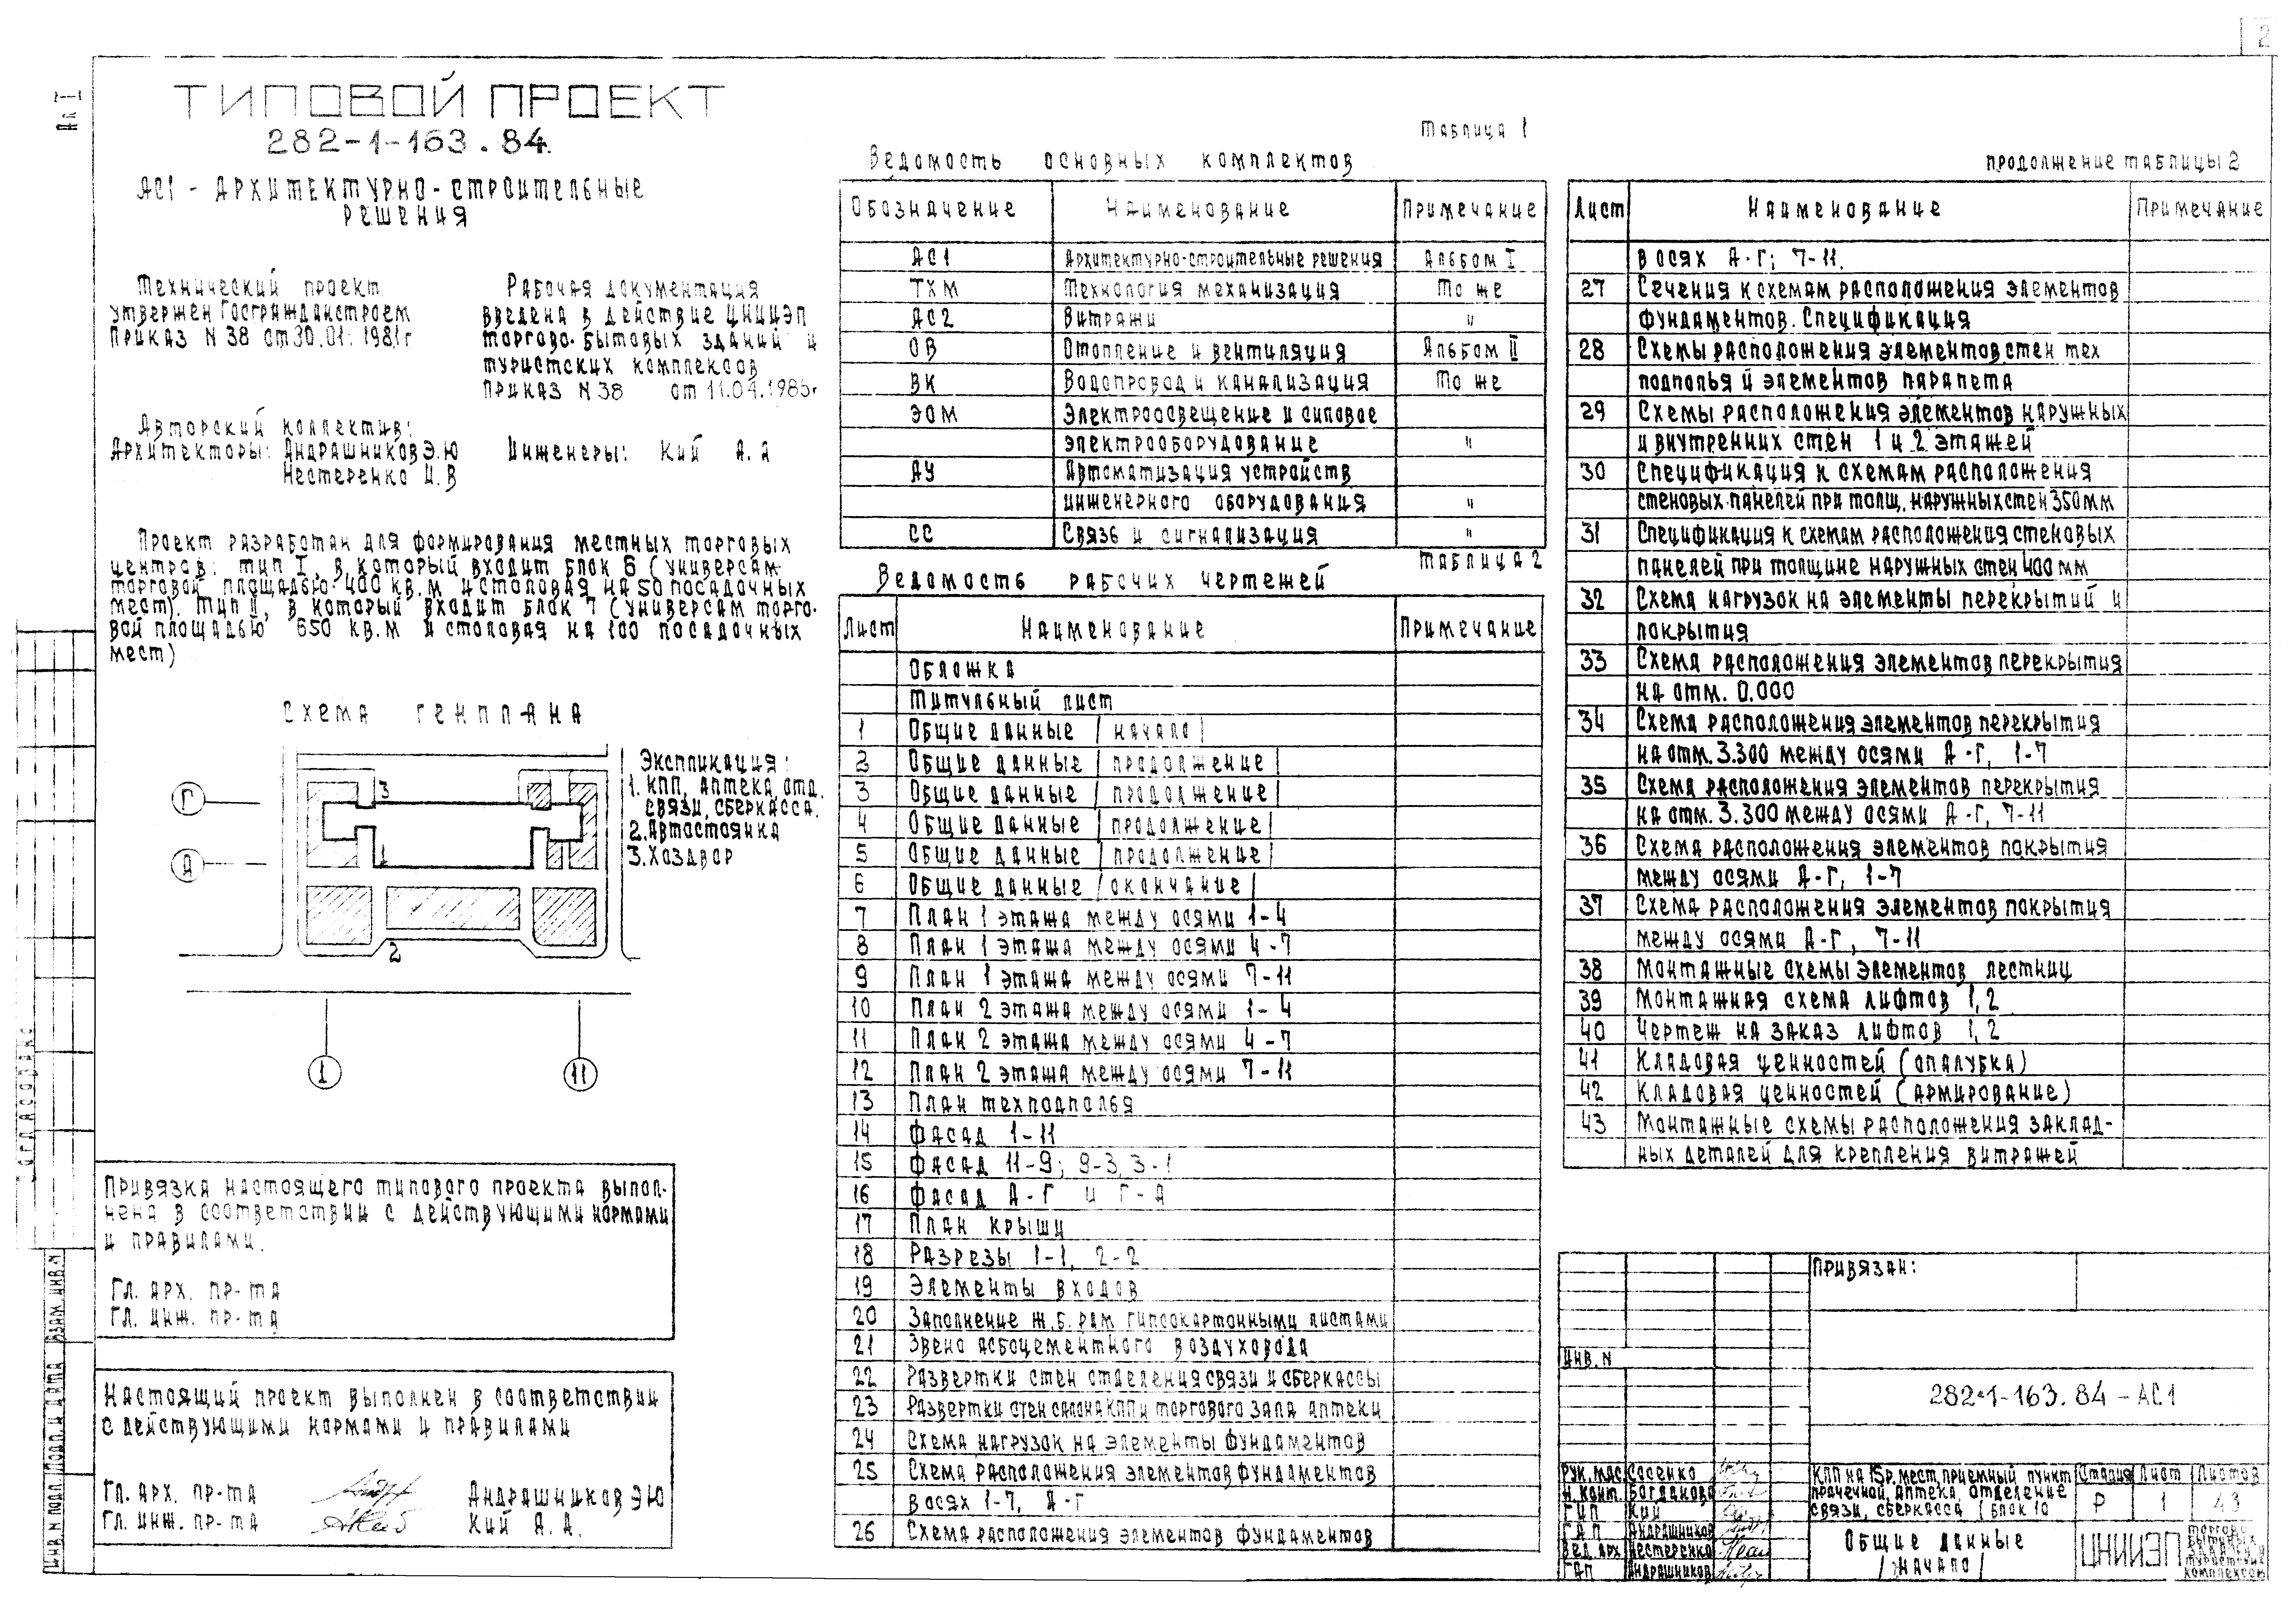 2
Ал I
ТИПОВОЙ ПРОЕКТ
282-1-163.84.
АС1 - АРХИТЕКТУРНО-СТРОИТЕЛЬНЫЕ
РЕШЕНИЯ
Технический проект
утвержен Госгражданстроем
Приказ N 38 от 30.01.1981г
Рабочая документация
введена в действие ЦНИИЭП
торгово-бытовых зданий и
туристских комплексов
Приказ N 38 от 11.04.1985г
Авторский коллектив:
Архитекторы: Андрашников Э.Ю
Нестеренко И.В
Инженеры: Кий А.А
Проект разработан для формирования местных торговых
центров: тип I, в который входит блок 6 (универсам
торговой площадью 400 кв.м и столовая на 50 посадочных
мест). Тип II, в который входит блок 7 (универсам торго-
вой площадью 650 кв.м и столовая на 100 посадочных
мест)
Схема генплана
Экспликация:
1. КПП, аптека отд.
связи, сберкасса.
2. Автостоянка
3. Хоздвор
Г
А
3
1
2
1
11
Привязка настоящего типового проекта выпол-
нена в соответствии с действующими нормами
и правилами.
Гл. арх. пр-та
Гл. инж. пр-та
Настоящий проект выполнен в соответствии
с действующими нормами и правилами
Гл. арх. пр-та Андрашников Э Ю
Гл. инж. пр-та Кий А.А.
Согласовано
Взам. инв. N
Подп. и дата
Инв. N подл.
Таблица 1
Ведомость основных комплектов
Обозначение Наименование Примечание
АС1 Архитектурно-строительные решения Альбом I
ТХМ Технология механизация То же
АС2 Витражи "
ОВ Отопление и вентиляция Альбом II
ВК Водопровод и канализация То же
ЭОМ Электроосвещение и силовое
электрооборудование "
АУ Автоматизация устройств
инженерного оборудования "
СС Связь и сигнализация "
Таблица 2
Ведомость рабочих чертежей
Лист Наименование Примечание
Обложка
Титульный лист
1 Общие данные /начало/
2 Общие данные /продолжение/
3 Общие данные /продолжение/
4 Общие данные /продолжение/
5 Общие данные /продолжение/
6 Общие данные /окончание/
7 План 1 этажа между осями 1-4
8 План 1 этажа между осями 4-7
9 План 1 этажа между осями 7-11
10 План 2 этажа между осями 1-4
11 План 2 этажа между осями 4-7
12 План 2 этажа между осями 7-11
13 План техподполья
14 Фасад 1-11
15 Фасад 11-9; 9-3, 3-1
16 Фасад А-Г и Г-А
17 План крыши
18 Разрезы 1-1, 2-2
19 Элементы входов
20 Заполнение ж.б. рам гипсокартонными листами
21 Звено асбоцементного воздуховода
22 Развертки стен отделения связи и сберкассы
23 Развертки стен салона КПП и торгового зала аптеки
24 Схема нагрузок на элементы фундаментов
25 Схема расположения элементов фундаментов
в осях 1-7, А-Г
26 Схема расположения элементов фундаментов
Продолжение таблицы 2
Лист Наименование Примечание
в осях А-Г; 7-11.
27 Сечения к схемам расположения элементов
фундаментов. Спецификация
28 Схемы расположения элементов стен тех
подполья и элементов парапета
29 Схемы расположения элементов наружных
и внутренних стен 1 и 2 этажей
30 Спецификация к схемам расположения
стеновых панелей при толщ. наружных стен 350мм
31 Спецификация к схемам расположения стеновых
панелей при толщине наружных стен 400 мм
32 Схема нагрузок на элементы перекрытий и
покрытия
33 Схема расположения элементов перекрытия
на отм. 0.000
34 Схема расположения элементов перекрытия
на отм. 3.300 между осями А-Г, 1-7
35 Схема расположения элементов перекрытия
на отм. 3.300 между осями А-Г, 7-11
36 Схема расположения элементов покрытия
между осями А-Г, 1-7
37 Схема расположения элементов покрытия
между осями А-Г, 7-11
38 Монтажные схемы элементов лестниц
39 Монтажная схема лифтов 1,2
40 Чертеж на заказ лифтов 1,2
41 Кладовая ценностей (опалубка)
42 Кладовая ценностей (армирование)
43 Монтажные схемы расположения заклад-
ных деталей для крепления витражей
Привязан:
Инв. N
282-1-163.84 - АС1
Рук. мас. Сосенко
Н. конт. Богданова
ГИП Кий
ГАП Андрашников
Вед. арх Нестеренко
ГАП Андрашников
КПП на 15 р. мест, приемный пункт
прачечной, аптека, отделение
связи, сберкасса (блок 10
Стадия Лист Листов
Р 1 43
Общие данные
/начало/
ЦНИИЭП
торгово
бытовых
зданий и
туристских
комплексов